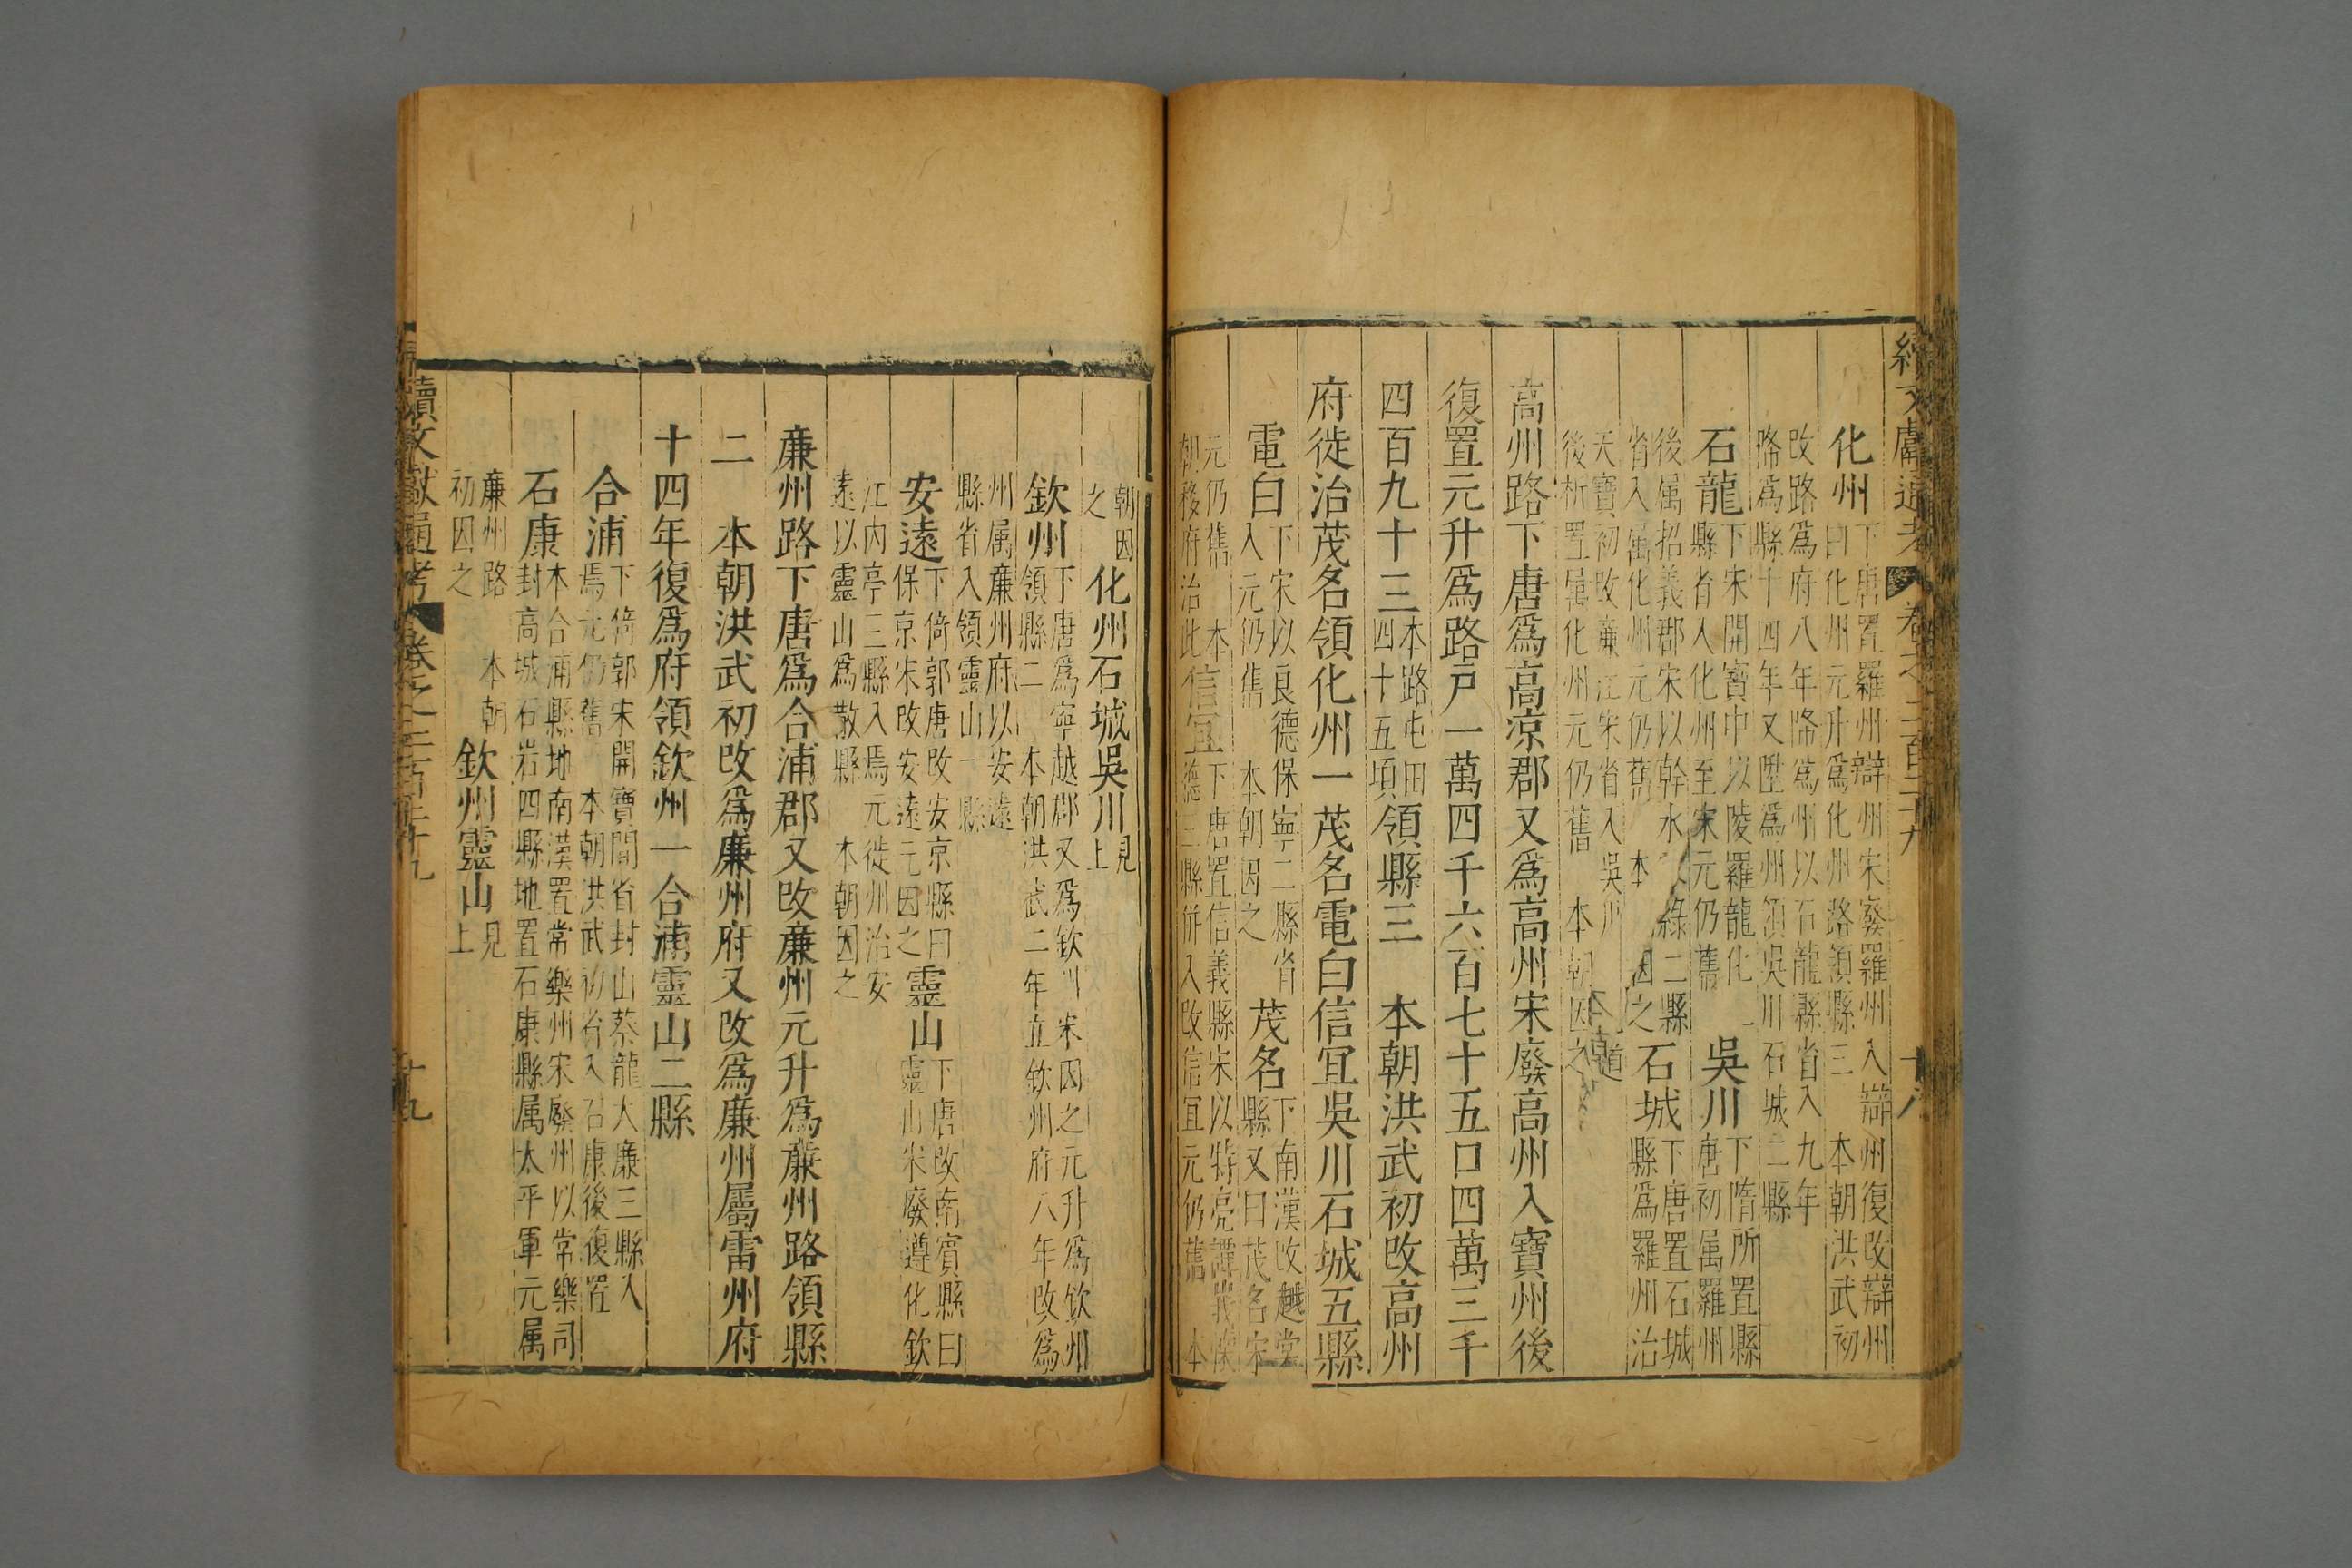 續文獻通考 卷之二百二十九 十八
化州 下唐置羅州辯州宋廢羅州入辯州復改辯州
曰化州元升為化州路領縣三 本朝洪武初
改路為府八年降為州以石龍縣省入九年
降為縣十四年又陞為州領吳川石城二縣
石龍 下宋開寶中以陵羅龍化
縣省入化州至宋元仍舊
吳川 下隋所置縣
唐初属羅州
後属招義郡宋以幹水 綠二縣
省入属化州元仍舊 本 因之
石城 下唐置石城
縣為羅州治
天寶初改廉江宋省入吳川
後析置属化州元仍舊 本朝因之
高州路下唐為高凉郡又為高州宋廢高州入竇州後
復置元升為路戸一萬四千六百七十五口四萬三千
四百九十三
本路屯田
四十五頃
領縣三 本朝洪武初改高州
府徙治茂名領化州一茂名電白信宜吳川石城五縣
電白 下宋以良德保寧二縣省
入元仍舊 本朝因之
茂名 下南漢改越裳
縣又曰茂名宋
元仍舊 本
朝移府治此
信宜 下唐置信義縣宋以特亮譚峩懷
德三縣併入改信宜元仍舊 本
朝因
之
化州石城吳川 見
上
欽州 下唐為寧越郡又為欽州宋因之元升為欽州
領縣二 本朝洪武二年立欽州府八年改為
州属廉州府以安遠
縣省入領靈山一縣
安遠 下倚郭唐改安京縣曰
保京宋改安遠元因之
靈山 下唐改南賓縣曰
靈山宋廢遵化欽
江内亭三縣入焉元徙州治安
遠以靈山為散縣 本朝因之
廉州路下唐為合浦郡又改廉州元升為廉州路領縣
二 本朝洪武初改為廉州府又改為廉州屬雷州府
十四年復為府領欽州一合浦靈山二縣
合浦 下倚郭宋開寶間省封山蔡龍大廉三縣入
焉元仍舊 本朝洪武初省入石康後復置
石康 本合浦縣地南漢置常樂州宋廢州以常樂司
封高城石岩四縣地置石康縣属太平軍元属
廉州路 本朝
初因之
欽州靈山 見
上
續文獻通考 卷之二百二十九 十九